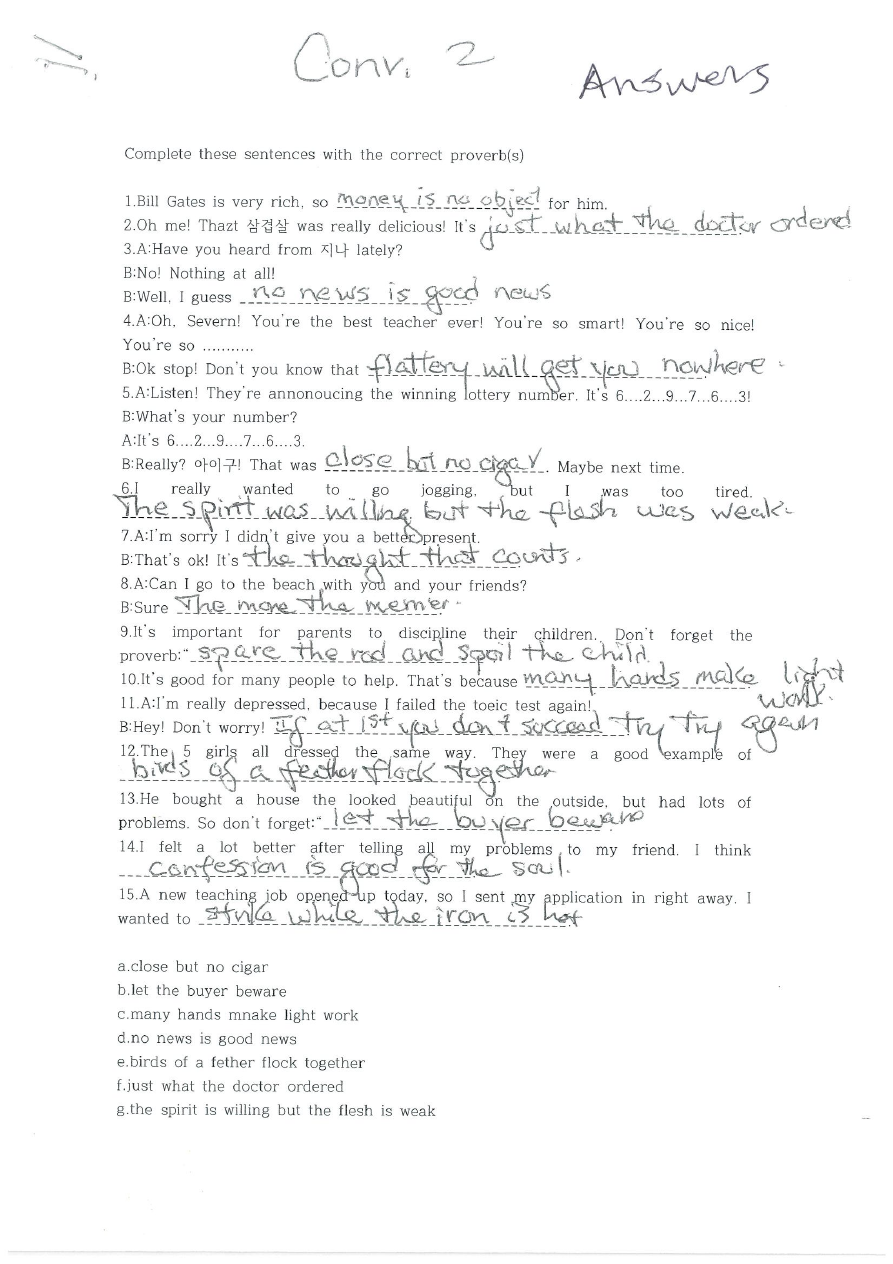 Conv. 2
Answers
Complete these sentences with the correct proverb(s)
1.Bill Gates is very rich, so money is no object for him.
2.Oh me! Thazt 삼겹살 was really delicious! It's just what the doctor ordered
3.A:Have you heard from 지나 lately?
B:No! Nothing at all!
B:Well, I guess no news is good news
4.A:Oh, Severn! You're the best teacher ever! You're so smart! You're so nice!
You're so ...........
B:Ok stop! Don't you know that flattery will get you nowhere.
5.A:Listen! They're annonoucing the winning lottery number. It's 6....2...9...7...6....3!
B:What's your number?
A:It's 6....2...9....7...6....3.
B:Really? 아이구! That was close but no cigar. Maybe next time.
6.I really wanted to go jogging, but I was too tired.
The spirit was willing but the flesh was weak.
7.A:I'm sorry I didn't give you a better present.
B:That's ok! It's the thought that counts.
8.A:Can I go to the beach with you and your friends?
B:Sure The more the merrier.
9.It's important for parents to discipline their children. Don't forget the
proverb:" spare the rod and spoil the child.
10.It's good for many people to help. That's because many hands make light
work.
11.A:I'm really depressed, because I failed the toeic test again!
B:Hey! Don't worry! If at 1st you don't succeed try try again
12.The 5 girls all dressed the same way. They were a good example of
birds of a feather flock together
13.He bought a house the looked beautiful on the outside, but had lots of
problems. So don't forget:" let the buyer beware
14.I felt a lot better after telling all my problems to my friend. I think
confession is good for the soul.
15.A new teaching job opened up today, so I sent my application in right away. I
wanted to strike while the iron is hot
a.close but no cigar
b.let the buyer beware
c.many hands mnake light work
d.no news is good news
e.birds of a fether flock together
f.just what the doctor ordered
g.the spirit is willing but the flesh is weak